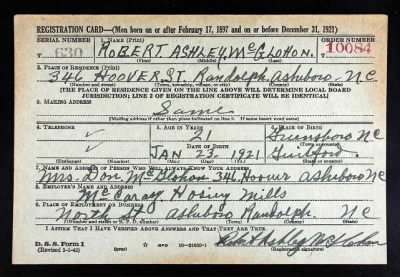 REGISTRATION CARD—(Men born on or after February 17, 1897 and on or before December 31, 1921)
SERIAL NUMBER 1. NAME (Print) ORDER NUMBER
V 630 ROBERT ASHLEY McGLOHON 10084
(First) (Middle) (Last)
2. PLACE OF RESIDENCE (Print)
346 HOOVER ST. Randolph Asheboro N.C.
(Number and street) (Town, township, village, or city) (County) (State)
[THE PLACE OF RESIDENCE GIVEN ON THE LINE ABOVE WILL DETERMINE LOCAL BOARD
JURISDICTION; LINE 2 OF REGISTRATION CERTIFICATE WILL BE IDENTICAL]
3. MAILING ADDRESS
Same
[Mailing address if other than place indicated on line 2. If same insert word same]
4. TELEPHONE 5. AGE IN YEARS 6. PLACE OF BIRTH
21 Greensboro NC
DATE OF BIRTH
JAN 23 1921 Guilford
(Exchange) (Number) (Mo.) (Day) (Yr.) (State or country)
7. NAME AND ADDRESS OF PERSON WHO WILL ALWAYS KNOW YOUR ADDRESS
Mrs. Don McGlohon 346 Hoover Asheboro NC
8. EMPLOYER'S NAME AND ADDRESS
McCrary Hosiery Mills
9. PLACE OF EMPLOYMENT OR BUSINESS
North St Asheboro Randolph NC
(Number and street or R. F. D. number) (Town) (County) (State)
I AFFIRM THAT I HAVE VERIFIED ABOVE ANSWERS AND THAT THEY ARE TRUE.
D. S. S. Form 1
(Revised 1-1-42) (over) GPO 16—21630-1 Robert Ashley McGlohon